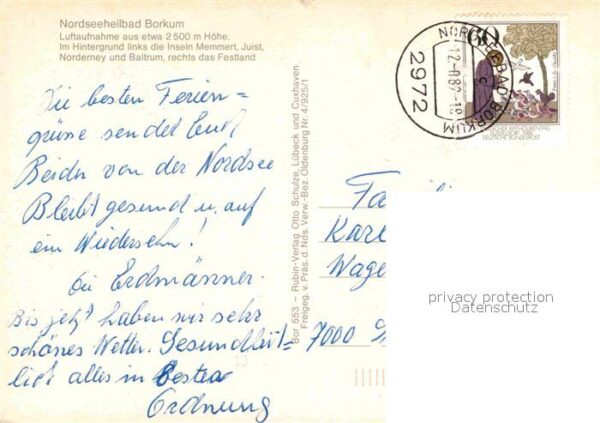 Nordseeheilbad Borkum
Luftaufnahme aus etwa 2500 m Höhe.
Im Hintergrund links die Inseln Memmert, Juist,
Norderney und Baltrum, rechts das Festland
Die besten Ferien=
grüsse sendet Euch
Beiden von der Nordsee
Bleibt gesund u. auf
ein Wiedersehn!
die Erdmänner.
Bis jetzt haben wir sehr
schönes Wetter. Gesundheit=
lich alles in Bester
Ordnung
Bor 553 – Rubin-Verlag Otto Schulze, Lübeck und Cuxhaven
Freigeg. v. Präs. d. Nds. Verw.-Bez. Oldenburg Nr. 4/925/1
60
DEUTSCHE BUNDESPOST
NORDSEEBAD BORKUM
2972
Fa
Karl
Wage
7000
privacy protection
Datenschutz